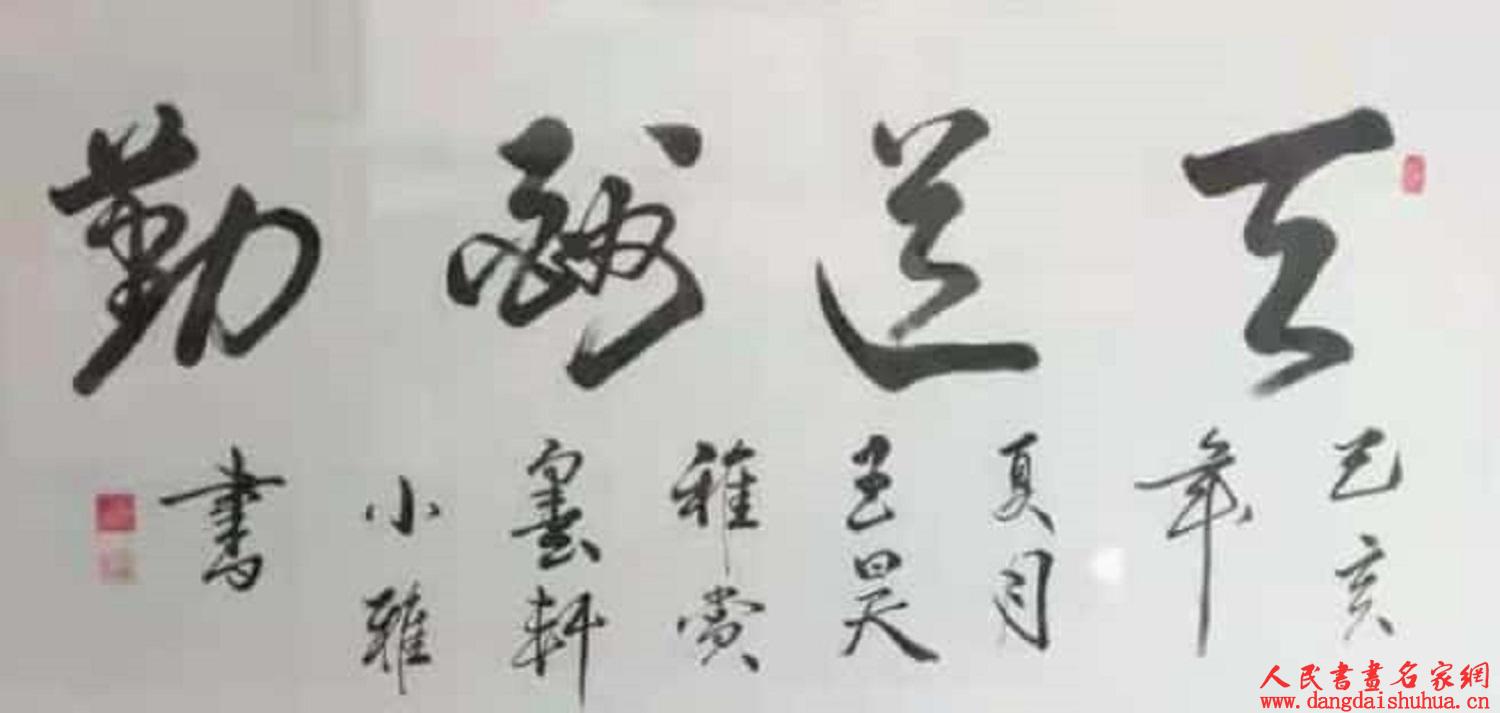 天道酬勤
己亥
年
夏月
王昊
雅赏
墨轩
小雅
書
人民書畫名家網
www.dangdaishuhua.cn